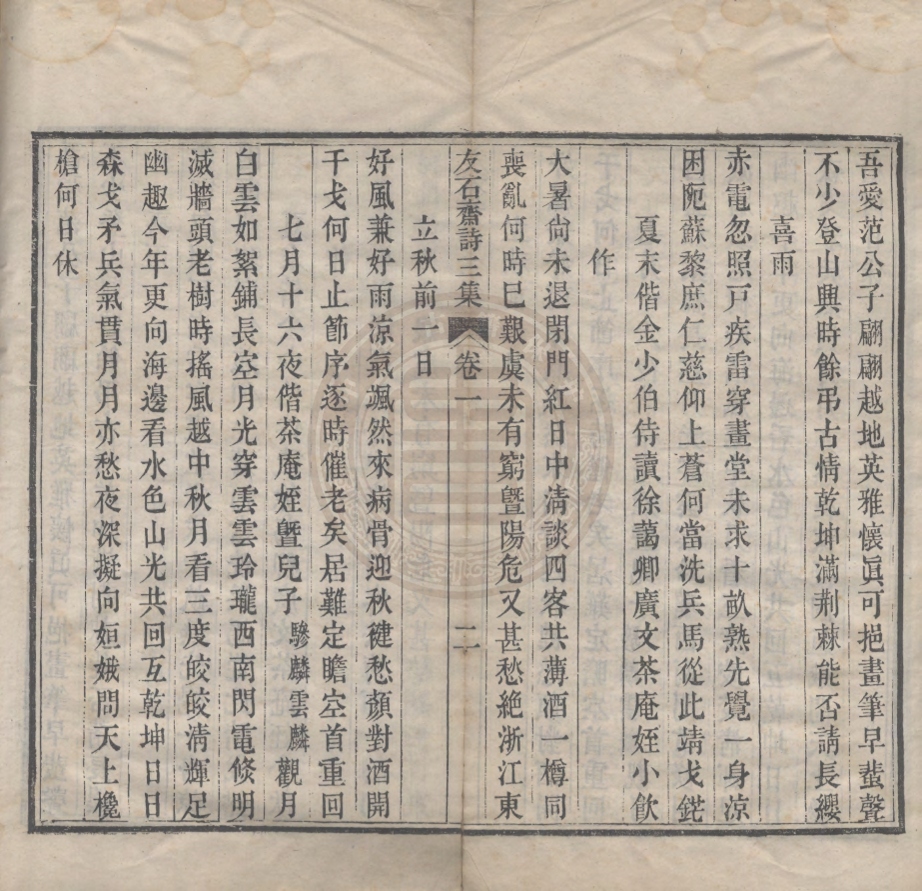 吾愛范公子翩翩越地英雅懷眞可挹畫筆早蜚聲
不少登山興時餘弔古情乾坤滿荆棘能否請長纓
喜雨
赤電忽照戸疾雷穿畫堂未求十畝熟先覺一身涼
困阨蘇黎庶仁慈仰上蒼何當洗兵馬從此靖戈鋩
夏末偕金少伯侍讀徐藹卿廣文茶庵姪小飲
作
大暑尙未退閉門紅日中淸談四客共薄酒一樽同
喪亂何時巳艱虞未有窮曁陽危又甚愁絶浙江東
友石齋詩三集 卷一 二
立秋前一日
好風兼好雨涼氣颯然來病骨迎秋健愁顏對酒開
干戈何日止節序逐時催老矣居難定瞻空首重回
七月十六夜偕茶庵姪曁兒子驂麟雲麟觀月
白雲如絮鋪長空月光穿雲雲玲瓏西南閃電倐明
滅牆頭老樹時搖風越中秋月看三度皎皎淸輝足
幽趣今年更向海邊看水色山光共回互乾坤日日
森戈矛兵氣貫月月亦愁夜深擬向姮娥問天上欃
槍何日休